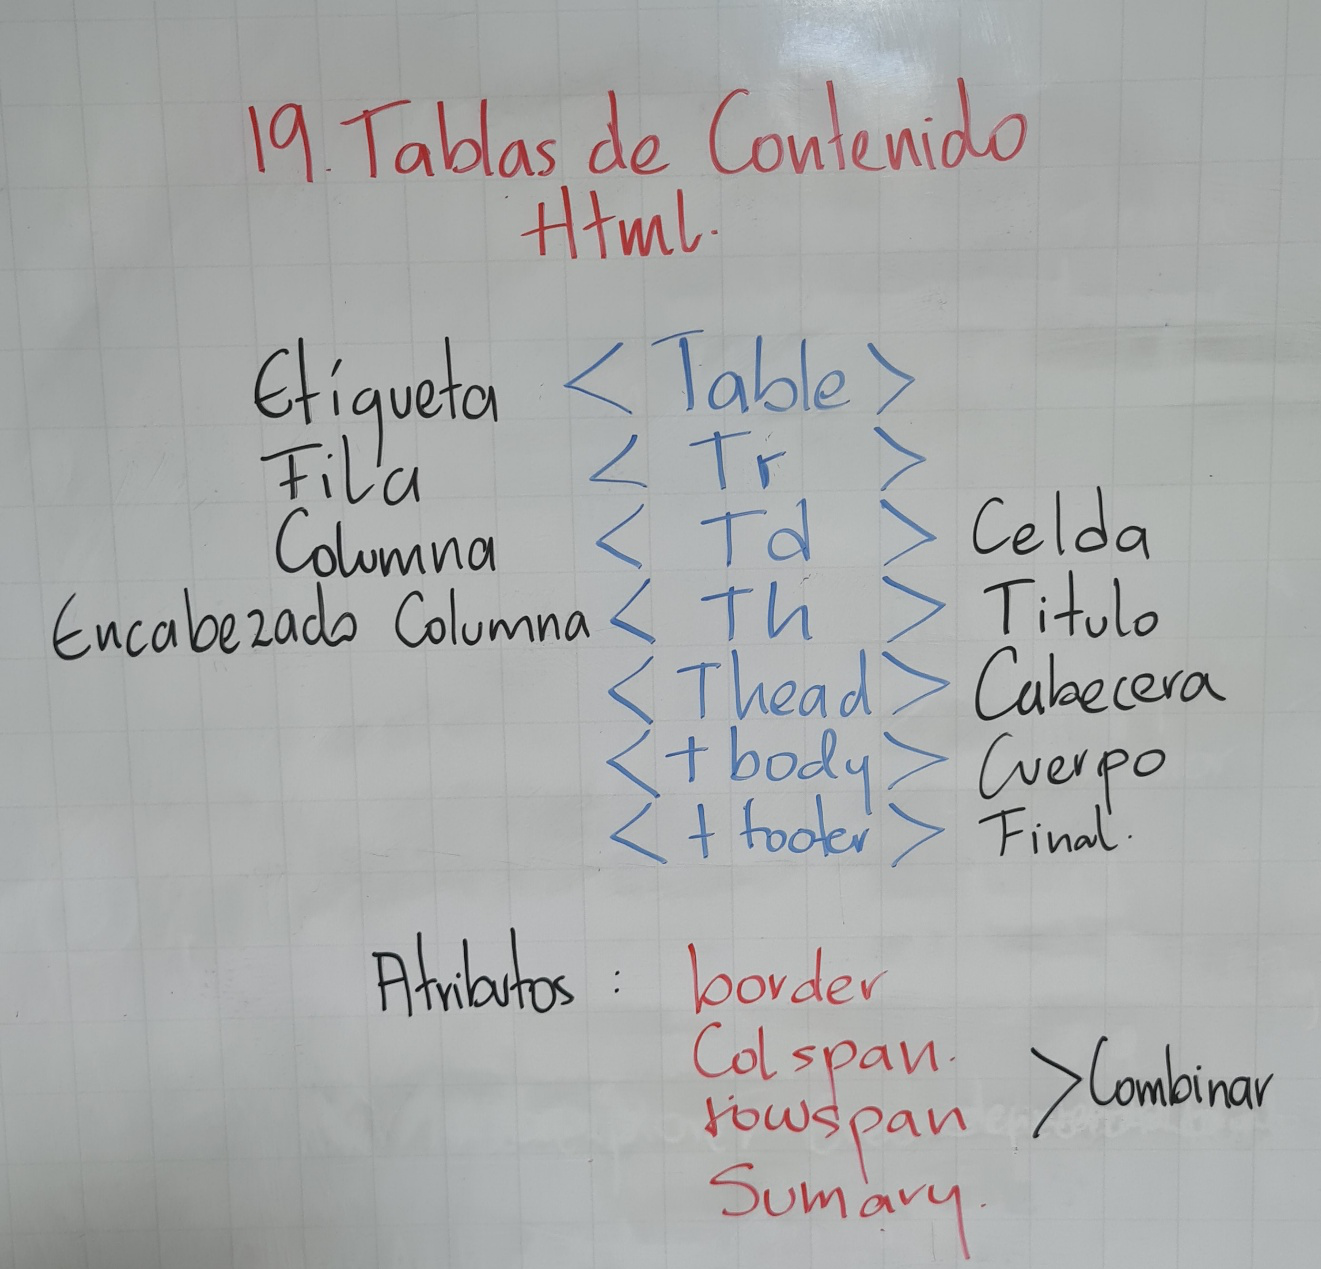 19. Tablas de Contenido
Html.
Etiqueta < Table >
Fila < Tr >
Columna < Td > Celda
Encabezado Columna < Th > Titulo
< Thead > Cabecera
< tbody > Cuerpo
< tfooter > Final.
Atributos : border
Colspan.
rowspan > Combinar
Sumary.